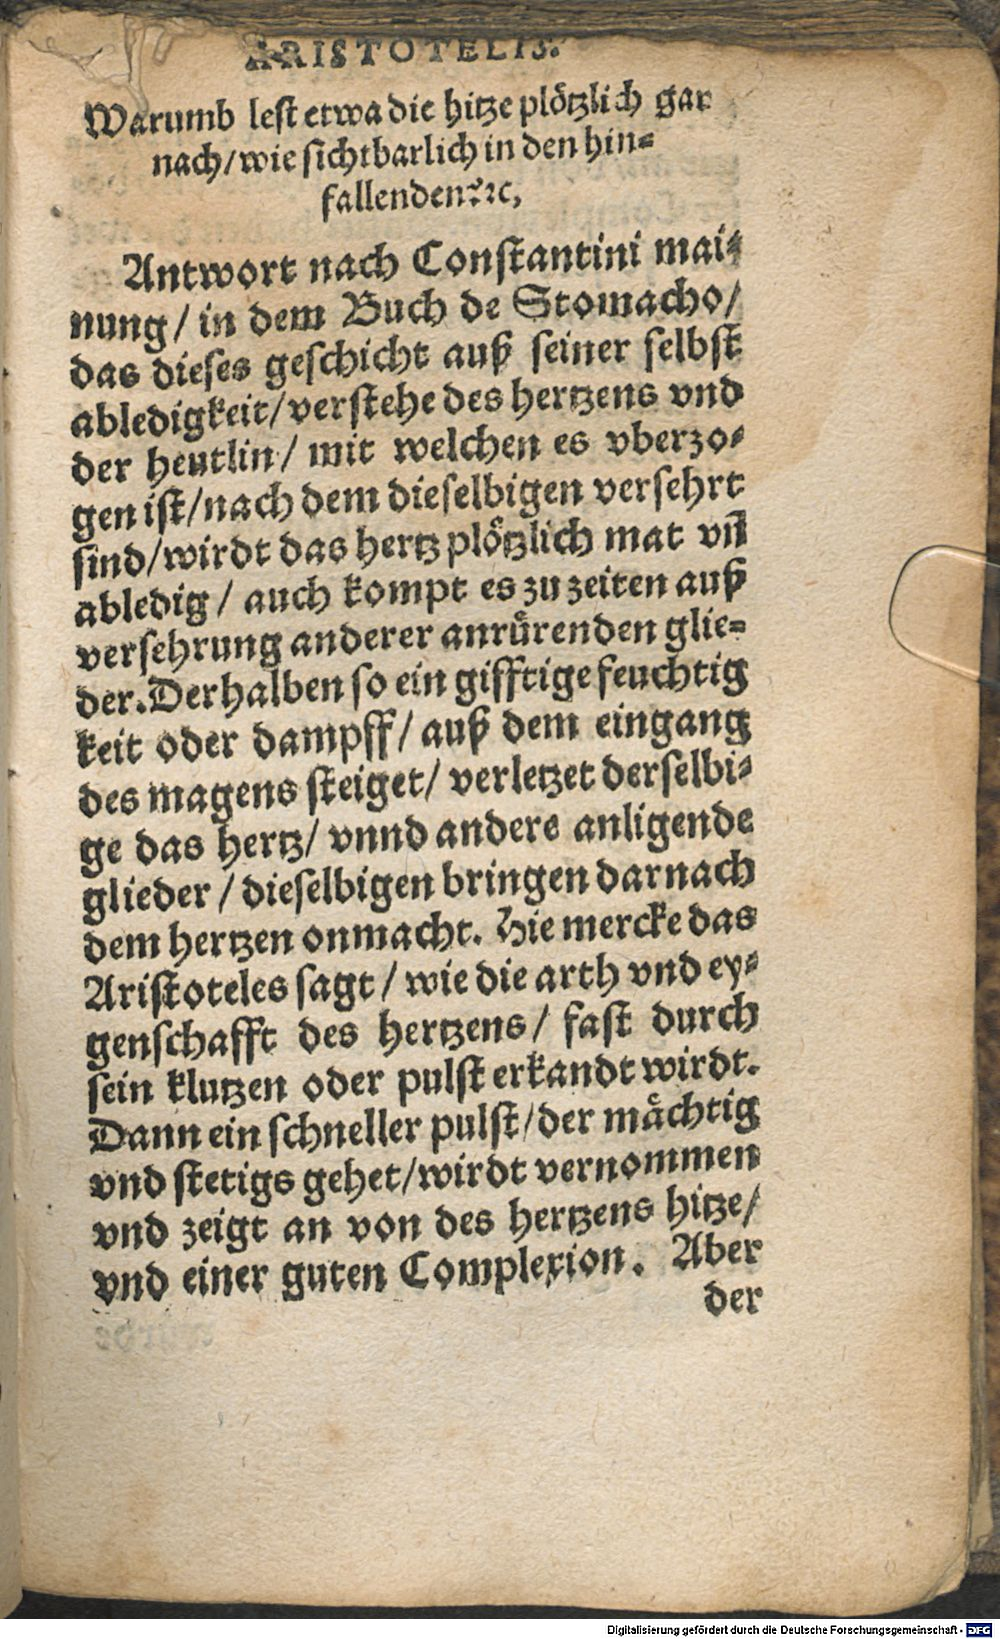 ARISTOTELIS.
Warumb lest etwa die hitze plötzlich gar
nach/wie sichtbarlich in den hin-
fallenden?ꝛc,
Antwort nach Constantini mai-
nung/ in dem Buch de Stomacho/
das dieses geschicht auß seiner selbst
abledigkeit/verstehe des hertzens vnd
der heutlin/ mit welchen es vberzo-
gen ist/nach dem dieselbigen versehrt
sind/wirdt das hertz plötzlich mat vñ
abledig/ auch kompt es zu zeiten auß
versehrung anderer anrürenden glie-
der.Derhalben so ein gifftige feuchtig
keit oder dampff/ auß dem eingang
des magens steiget/ verletzet derselbi-
ge das hertz/ vnnd andere anligende
glieder/ dieselbigen bringen darnach
dem hertzen onmacht. Hie mercke das
Aristoteles sagt/ wie die arth vnd ey-
genschafft des hertzens/ fast durch
sein klutzen oder pulst erkandt wirdt.
Dann ein schneller pulst/der mächtig
vnd stetigs gehet/wirdt vernommen
vnd zeigt an von des hertzens hitze/
vnd einer guten Complexion. Aber
der
Digitalisierung gefördert durch die Deutsche Forschungsgemeinschaft - DFG